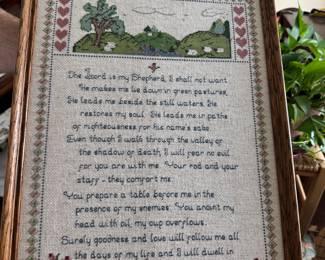 The Lord is my Shepherd, I shall not want
He makes me lie down in green pastures,
He leads me beside the still waters, He
restores my soul. He leads me in paths
of righteousness for his name's sake
Even though I walk through the valley of
the shadow of death, I will fear no evil
for you are with me. Your rod and your
staff - they comfort me.
You prepare a table before me in the
presence of my enemies. You anoint my
head with oil, my cup overflows.
Surely goodness and love will follow me all
the days of my life and I will dwell in